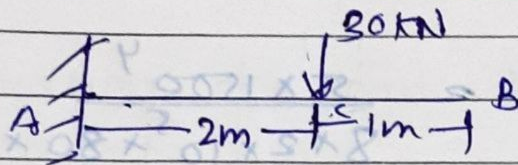 30 KN
A B
2m c 1m